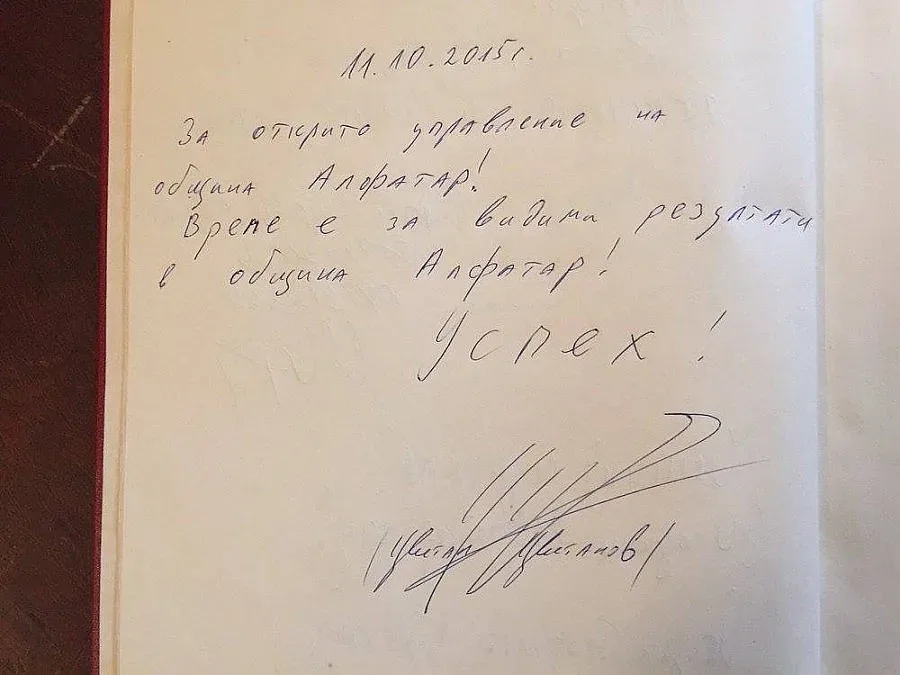 11.10.2015г.
За открито управление на
община Алфатар!
Време е за видими резултати
в община Алфатар!
Успех!
/Цветан Цветанов/